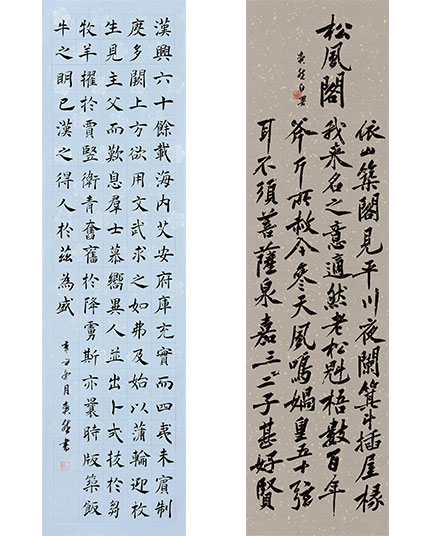 漢興六十餘載海内艾安府庫充實而四夷未賓制
度多闕上方欲用文武求之如弗及始以蒲輪迎枚
生見主父而歎息羣士慕嚮異人並出卜式拔於芻
牧羊擢於賈豎衛青奮舊於降虜斯亦曩時版築飯
牛之明已漢之得人於茲為盛
辛丑月書
松風閣
依山築閣見平川夜闌箕斗插屋椽
我来名之意適然老松魁梧數百年
斧斤所赦今參天風鳴媧皇五十弦
耳不須菩薩泉嘉三二子甚好賢